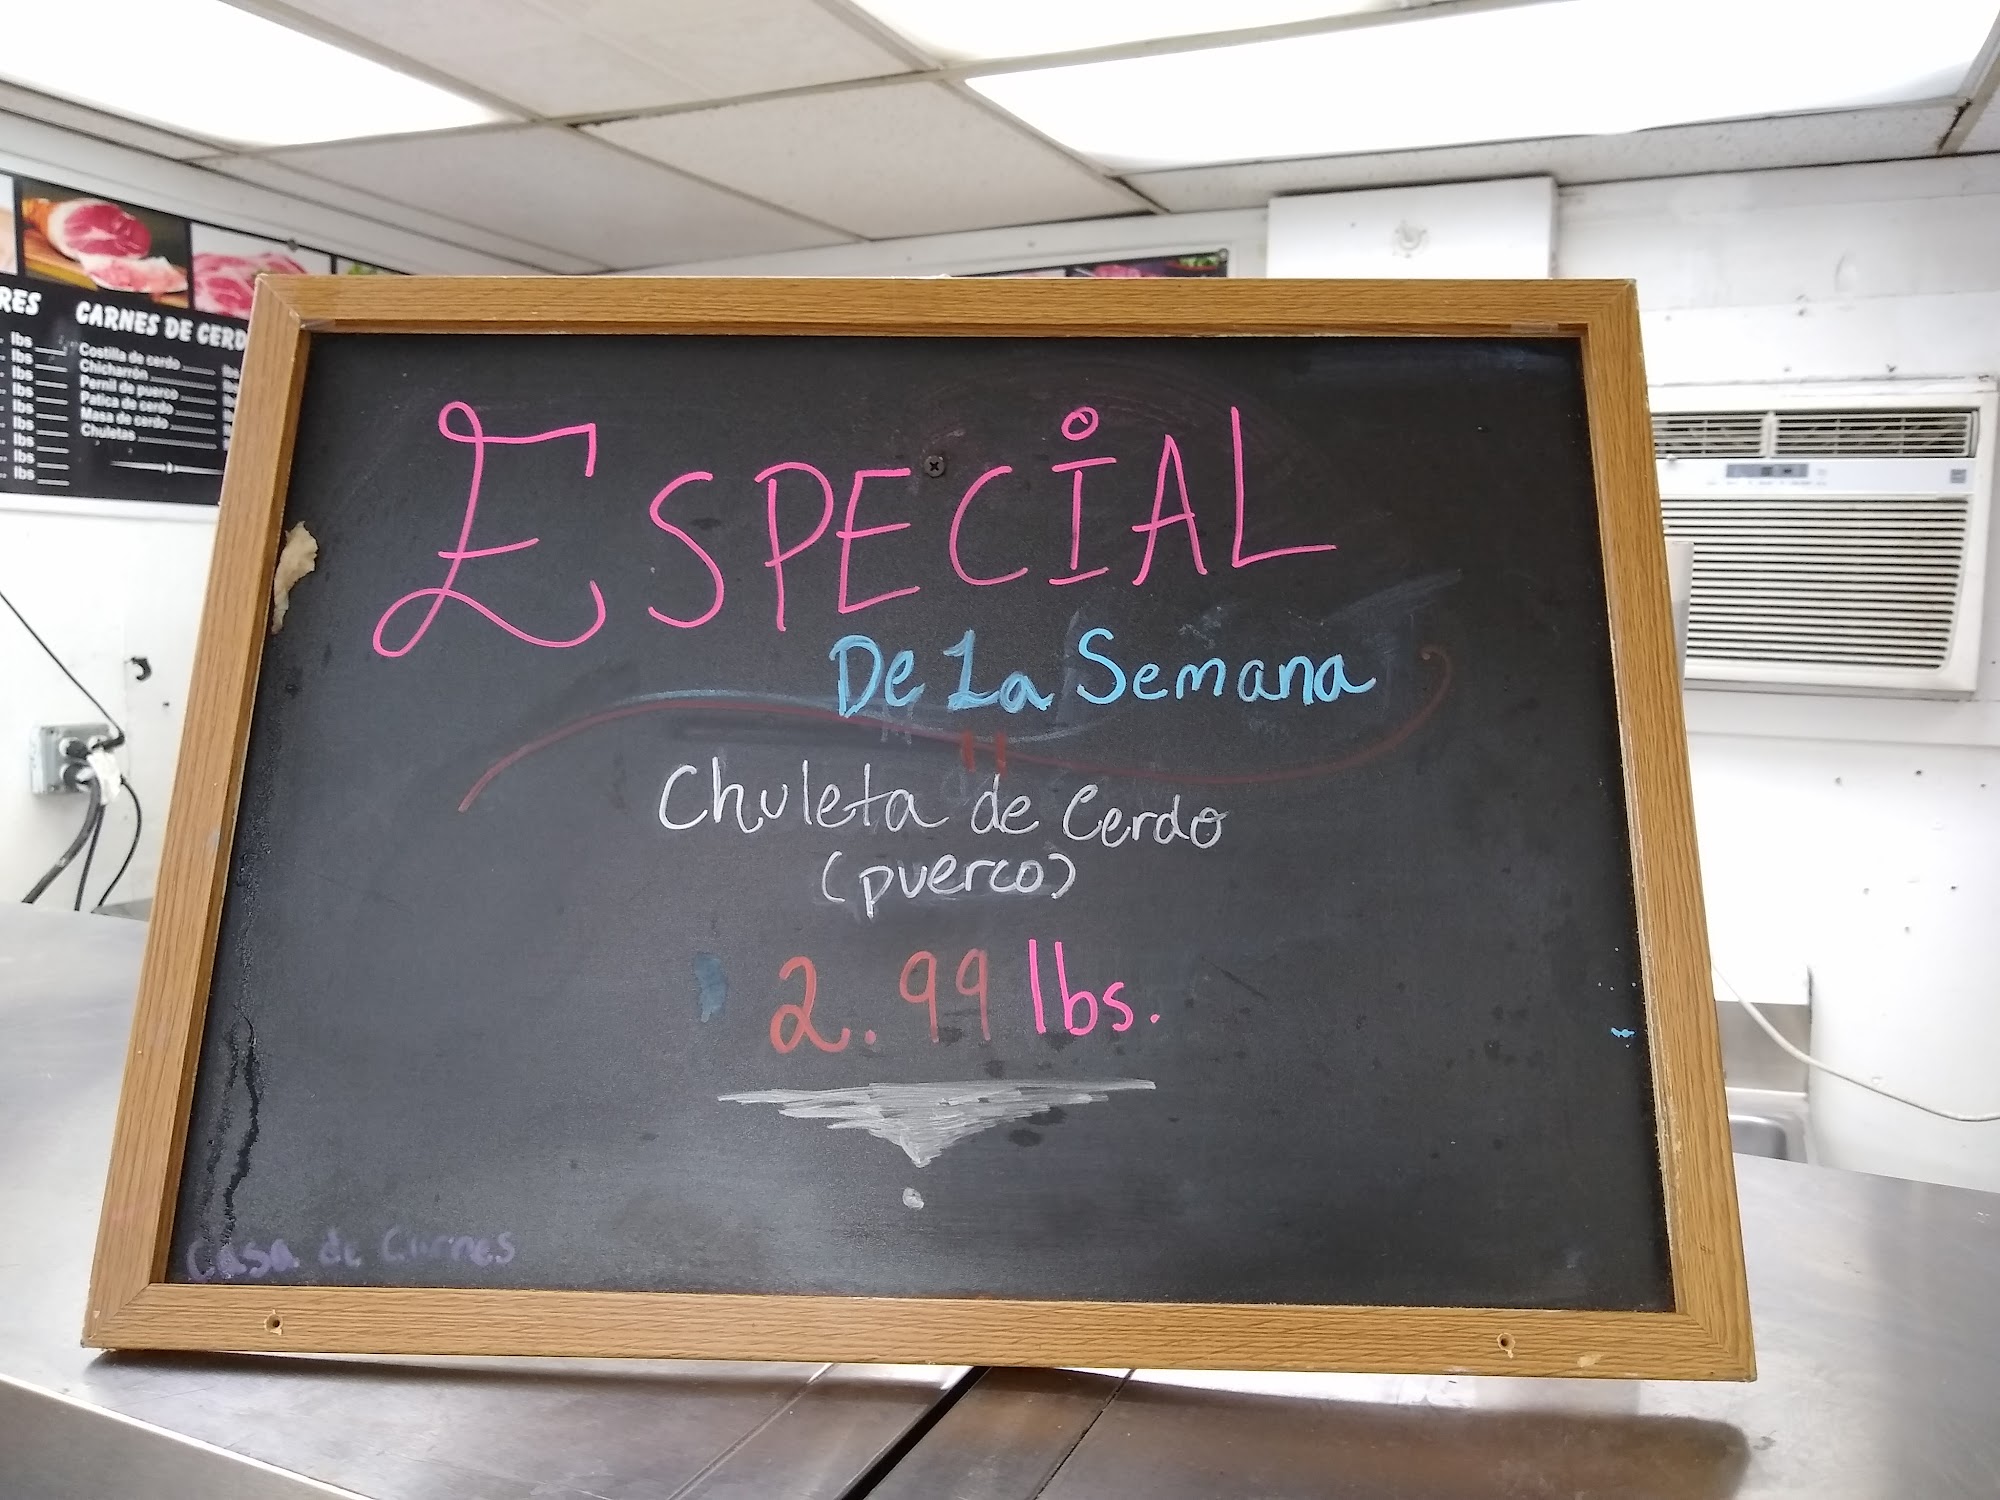 ESPECiAL
De La Semana
Chuleta de Cerdo
(puerco)
2.99 lbs.
Casa de Carnes
RES
lbs
lbs
lbs
lbs
lbs
lbs
lbs
lbs
CARNES DE CERD
Costilla de cerdo lbs
Chicharrón
Pernil de puerco
Patica de cerdo
Masa de cerdo
Chuletas